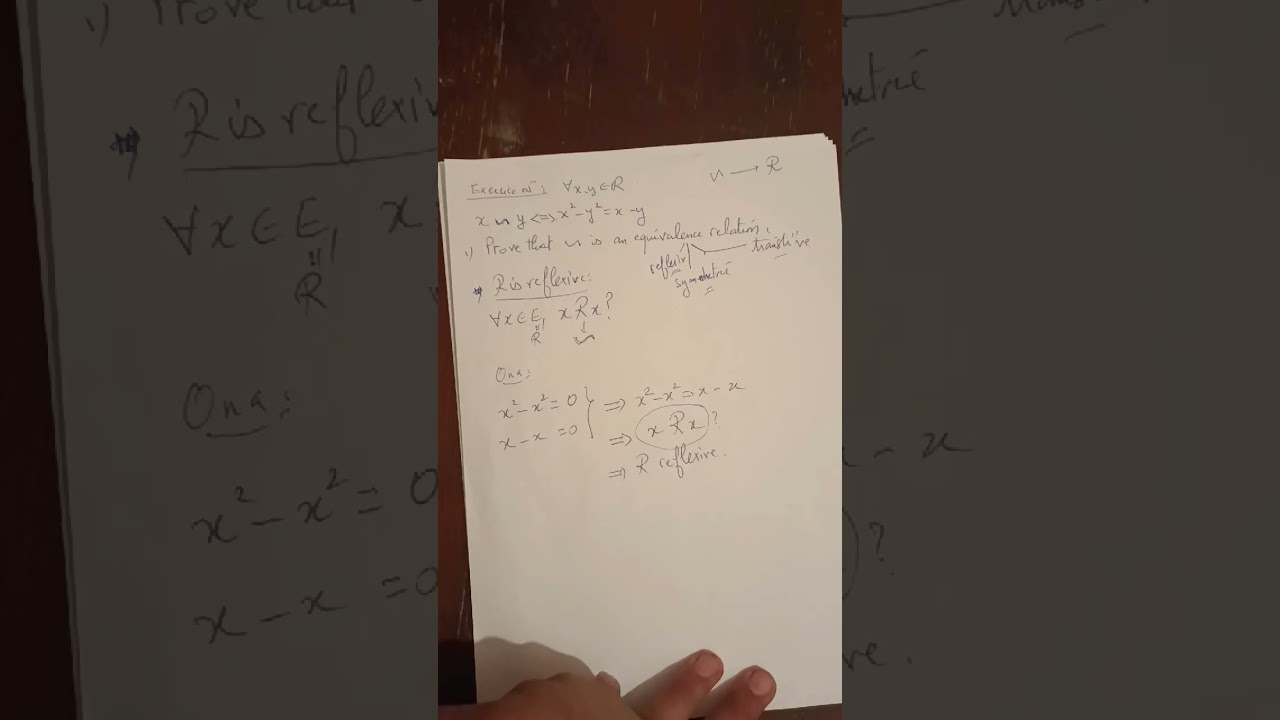 Exercice n° 1: ∀x,y ∈ ℝ
∽ ⟶ R
x ∽ y <=> x² - y² = x - y
1) Prove that ∽ is an equivalence relation.
reflexive
symetrie
transitive
R is reflexive:
∀x ∈ E, x R x ?
ℝ
∽
On a:
x² - x² = 0 } => x² - x² = x - x
x - x = 0
=> x R x ?
=> R reflexive.